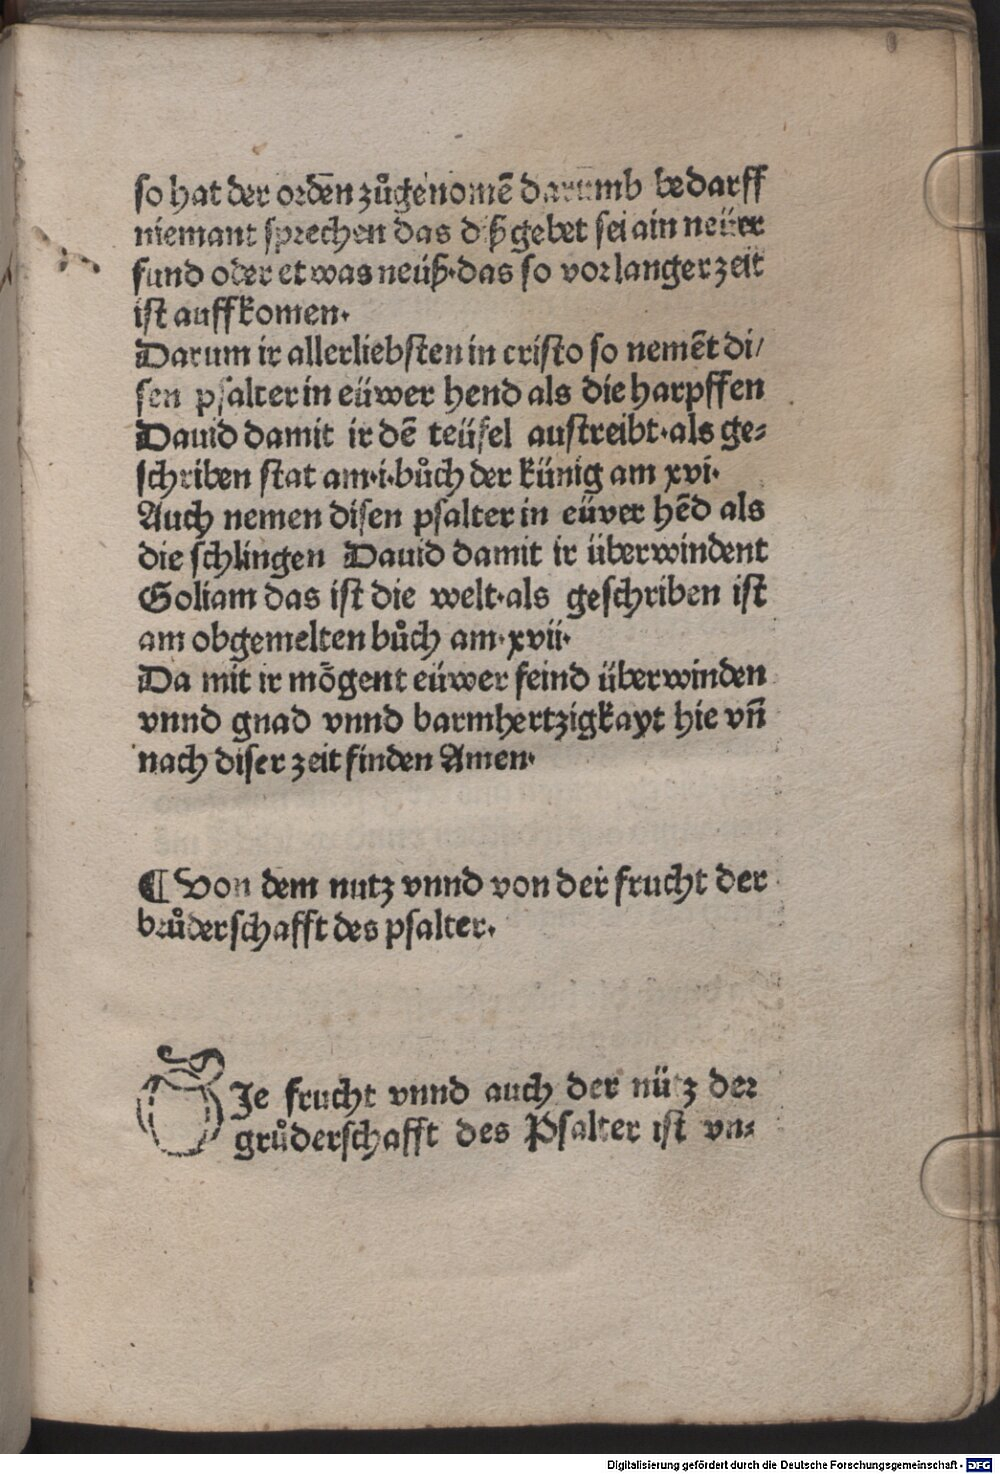 so hat der ordēn zůgenomē darumb bedarff
niemant sprechen das diß gebet sei ain neüer
fund oder etwas neüß·das so vor langer zeit
ist auffkomen·
Darum ir allerliebsten in cristo so nemēt di/
sen psalter in eüwer hend als die harpffen
Dauid damit ir dē teüfel austreibt·als ge⸗
schriben stat am·i·bůch der künig am xvi·
Auch nemen disen psalter in eüver hēd als
die schlingen Dauid damit ir überwindent
Goliam das ist die welt·als geschriben ist
am obgemelten bůch am·xvii·
Da mit ir mögent eüwer feind überwinden
vnnd gnad vnnd barmhertzigkayt hie vn̄
nach diser zeit finden Amen·
¶ Von dem nutz vnnd von der frucht der
brůderschafft des psalter·
DIe frucht vnnd auch der nütz der
grůderschafft des Psalter ist vn⸗
Digitalisierung gefördert durch die Deutsche Forschungsgemeinschaft - DFG